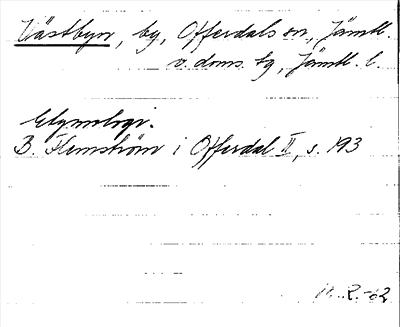 Västbyn, by, Offerdals sn, Jämtl.
v. doms. tg, Jämtl. l.
Etymologi.
B. Flemström i Offerdal II, s. 193
R.-62